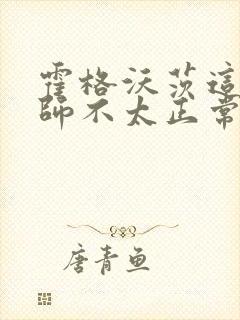 霍格沃茨這
師不太正常
唐青魚